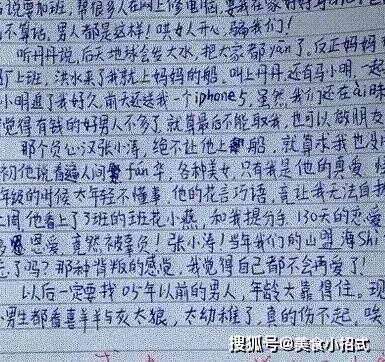 说要加班,帮很多人在网上修电脑,要我在家好好
话不算话,男人都是这样!哄女人开心,骗我们!
听丹丹说,后天地球会发大水,把大家都yān了,反正妈妈
了上班,洪水来了我就上妈妈的船,叫上丹丹还有马小明,一起
小明追了我好久,前天还送我一个iphone5,虽然我们还在ài昧
觉得有钱的好男人不多了,就算最后不能取我,也可以做朋友
那个负心汉张小涛,绝不让他上船,就算求我也没
初他说看遍人间fán华,各种美女,只有我是他的真爱
年级的时候太年轻不懂事,他的花言巧语,竟让我无法自
上周他看上了3班的班花小燕,和我提分手,130天的恋爱
恩爱,竟然被辜负!张小涛!当年我们的山盟海shì
忘了吗?那种背叛的感觉,我觉得自己都不会再爱了!
以后一定要找05年以前的男人,年龄大靠得住。现
男生都看喜羊羊与灰太狼,太幼稚了,真的伤不起,唉
搜狐号@美食小招式